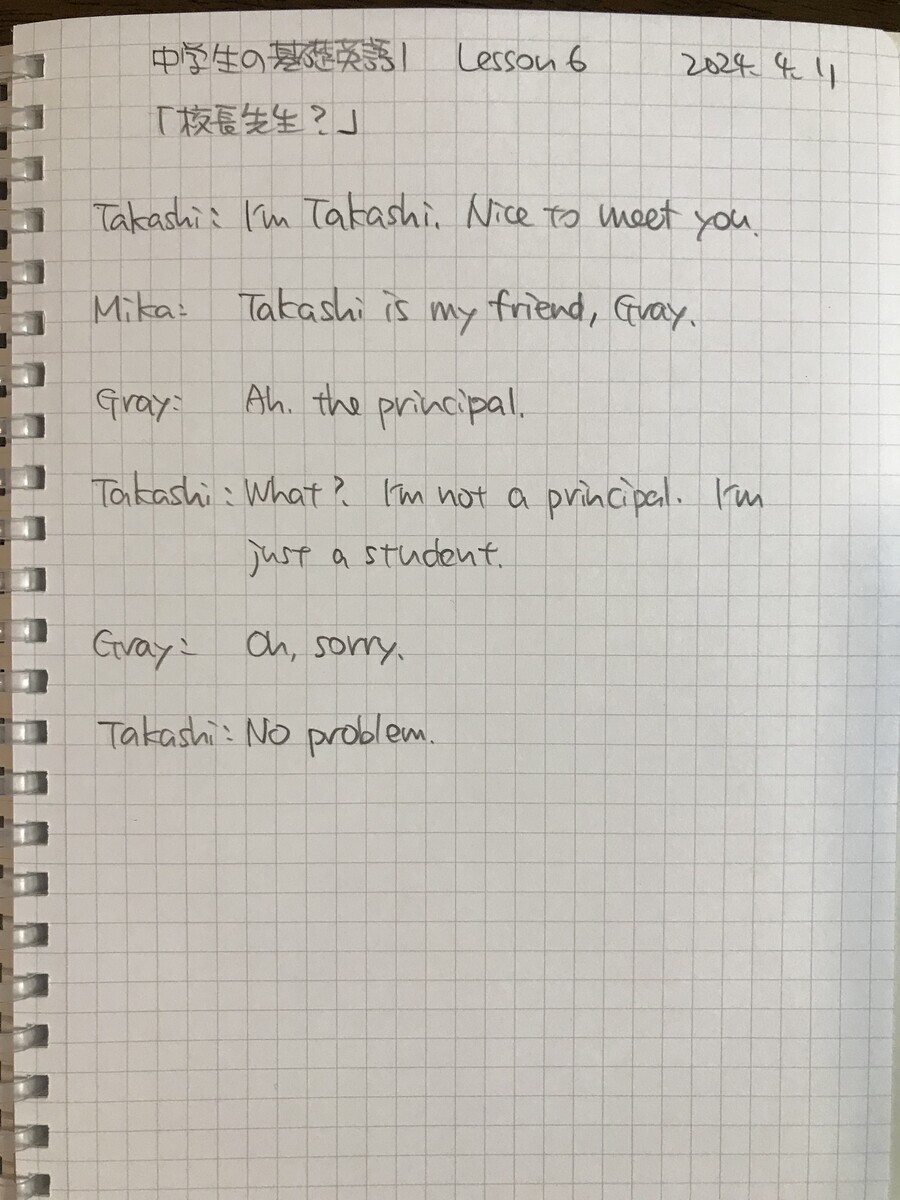 中学生の基礎英語1 Lesson 6 2024. 4. 11
「校長先生?」
Takashi: I'm Takashi. Nice to meet you.
Mika: Takashi is my friend, Gray.
Gray: Ah. the principal.
Takashi: What? I'm not a principal. I'm
just a student.
Gray: Oh, sorry.
Takashi: No problem.